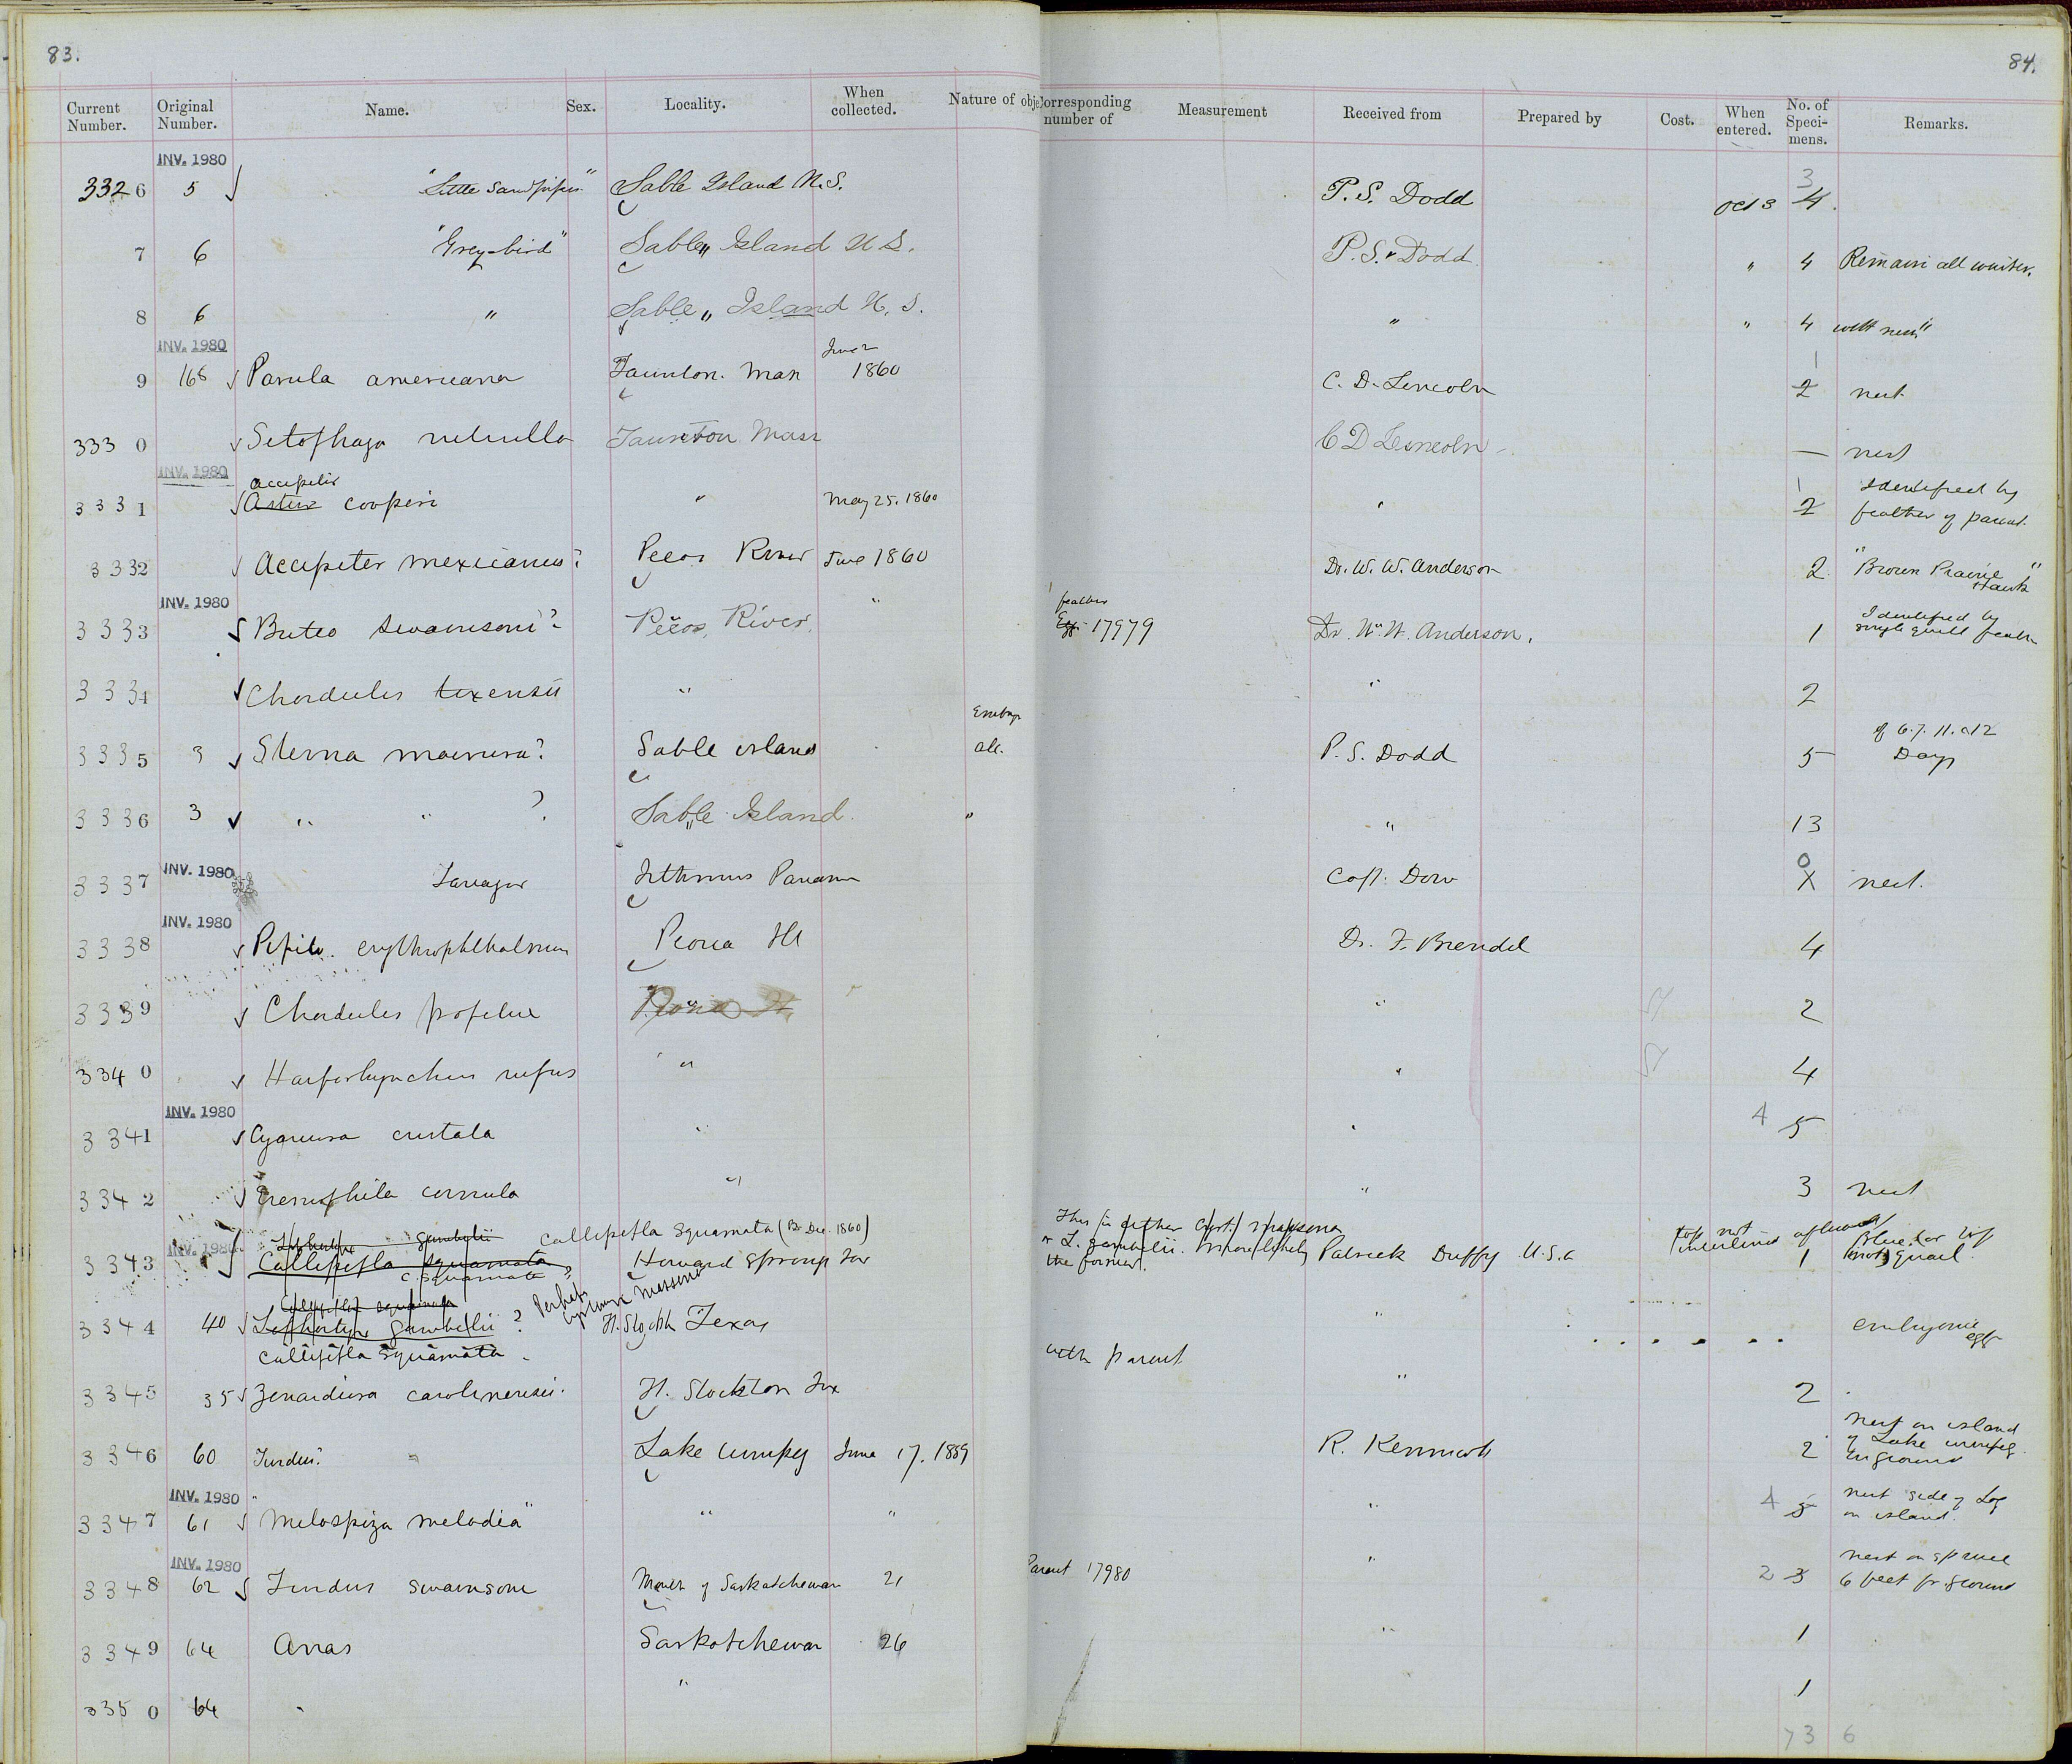 83.
84.
Current Number. Original Number. Name. Sex. Locality. When collected. Nature of obje Corresponding number of Measurement Received from Prepared by Cost. When entered. No. of Speci-mens. Remarks.
INV. 1980
3326 5 "Little Sandpiper" Sable Island N.S. P. S. Dodd Oct 3 3 4
7 6 "Grey-bird" Sable " Island N.S. P. S. " Dodd " 4 Remain all winter.
8 6 " Sable " Island N. S. " " 4 with nest
INV. 1980
9 168 Parula americana Taunton. Mass June 2 1860 C. D. Lincoln 1 2 nest
3330 Setophaga ruticilla Taunton Mass C D Lincoln — nest
INV. 1980
Accipiter
3331 Astur cooperi " May 25. 1860 " 1 2 Identified by feather of parent.
3332 Accipiter mexicanus? Pecos River June 1860 Dr. W. W. Anderson 2 "Brown Prairie Hawk"
INV. 1980
3333 Buteo swainsoni? Pecos River. " feather Egg 17979 Dr. W. W. Anderson. 1 Identified by single quill feather
3334 Chordeiles texensis " " 2
3335 3 Sterna macrura? Sable island Embryo alc. P. S. Dodd 5 of 6. 7. 11. a 12 Days
3336 3 " " ? Sable Island. " " 13
INV. 1980
3337 Tanager Isthmus Panama Capt. Dow 0 X nest.
INV. 1980
3338 Pipilo erythrophthalmus Peoria Ill Dr. F. Brendel 4
3339 Chordeiles popetue Peoria Ill " 2
3340 Harporhynchus rufus " " 4
INV. 1980
3341 Cyanura cristata " " 4 5
3342 Eremophila cornuta " " 3 nest
Lophortyx gambelii Callipepla squamata (B. Dec. 1860)
INV. 1980
3343 Callipepla squamata Howard Springs Tex Patrick Duffy U.S.A 1
C. squamata ?
This is either Cyrt. massena or L. gambelii. More likely the former.
Blue, or top knot Quail
Callipepla squamata
Perhaps Cyrtonyx Massena
3344 40 Lophortyx gambelii ? Ft. Stockton Texas " embryonic egg
Callipepla squamata
with parent
3345 35 Zenaidura carolinensis. Ft. Stockton Tex " 2
3346 60 Turdus? Lake Winnipeg June 17. 1859 R. Kennicott 2 Nest on island of Lake Winnipeg on ground
INV. 1980
3347 61 "Melospiza melodia" " " " 4 5 nest side of Log on island.
INV. 1980
3348 62 Turdus swainsoni Mouth of Saskatchewan 21 Parent 17980 " 2 3 nest on spruce 6 feet fr ground
3349 64 Anas Saskatchewan 26 " 1
3350 64 " " 1
73 6